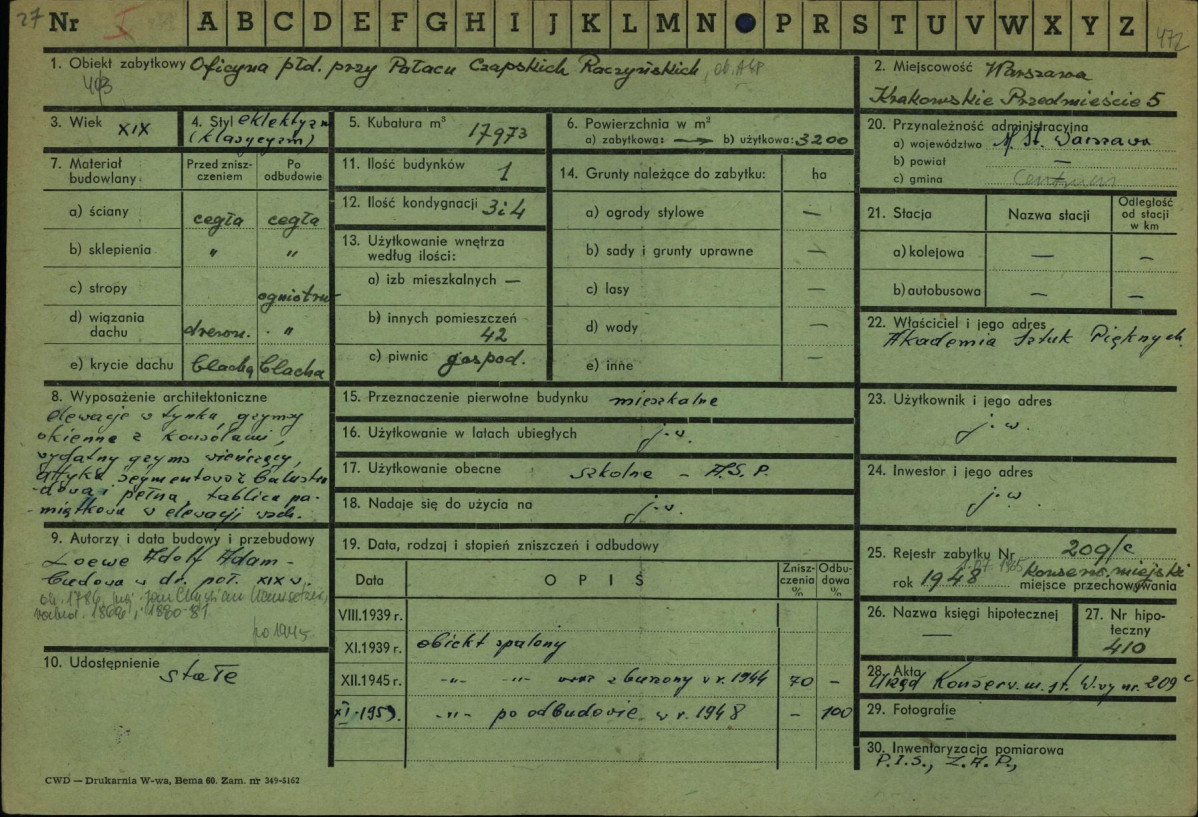 27 Nr I A B C D E F G H I J K L M N P R S T U V W X Y Z 472
1. Obiekt zabytkowy Oficyna płd. przy Pałacu Czapskich Raczyńskich, ob. ASP
2. Miejscowość Warszawa
Krakowskie Przedmieście 5
3. Wiek XIX
4. Styl eklektyzm
(klasycyzm)
5. Kubatura m³ 17973
6. Powierzchnia w m²
a) zabytkowa: b) użytkowa: 3200
7. Materiał budowlany
Przed zniszczeniem
Po odbudowie
a) ściany cegła cegła
b) sklepienia " "
c) stropy ogniotrw
d) wiązania dachu drewn. "
e) krycie dachu blacha blacha
8. Wyposażenie architektoniczne
elewacje w tynku, gzymsy
okienne z konsolami,
wydatny gzyms wieńczący,
attyka segmentowa z balustra-
-dową i pełna, tablica pa-
-miątkowa w elewacji wsch.
9. Autorzy i data budowy i przebudowy
Loewe Adolf Adam -
budowa w dr. poł. XIX w.
ok. 1786, wg. Jan Chrystian Kamsetzer,
1880-81
po 1945
10. Udostępnienie
stałe
11. Ilość budynków 1
12. Ilość kondygnacji 3 i 4
13. Użytkowanie wnętrza
według ilości:
a) izb mieszkalnych —
b) innych pomieszczeń
42
c) piwnic gospod.
14. Grunty należące do zabytku: ha
a) ogrody stylowe —
b) sady i grunty uprawne —
c) lasy —
d) wody —
e) inne —
15. Przeznaczenie pierwotne budynku mieszkalne
16. Użytkowanie w latach ubiegłych j. w.
17. Użytkowanie obecne szkolne – A.S.P.
18. Nadaje się do użycia na j. w.
19. Data, rodzaj i stopień zniszczeń i odbudowy
Data OPIS Zniszczenia % Odbudowa %
VIII.1939 r.
XI.1939 r. obiekt spalony
XII.1945 r. -"- -"- oraz zburzony w r. 1944 70 –
XI.1959. -"- po odbudowie w r. 1948 – 100
20. Przynależność administracyjna
a) województwo M. St. Warszawa
b) powiat —
c) gmina Centrum
21. Stacja Nazwa stacji Odległość od stacji w km
a) kolejowa — —
b) autobusowa — —
22. Właściciel i jego adres
Akademia Sztuk Pięknych
23. Użytkownik i jego adres
j. w.
24. Inwestor i jego adres
j. w.
25. Rejestr zabytku Nr 209/c
rok 1948 1965 konserw. miejski
miejsce przechowywania
26. Nazwa księgi hipotecznej
—
27. Nr hipoteczny
410
28. Akta
Urząd Konserw. m. st. W-wy nr. 209 c
29. Fotografie
–
30. Inwentaryzacja pomiarowa
P.I.S., Z.A.P.,
CWD — Drukarnia W-wa, Bema 60. Zam. nr 349-5162